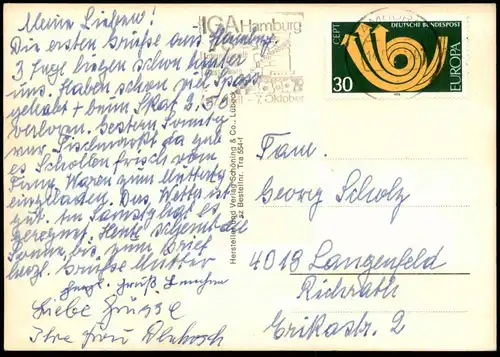 Meine Lieben!
Die ersten Grüße aus Hamburg.
3 Tage liegen schon hinter
uns. Haben schon viel Spass
gehabt + beim Skat 2.50
verloren. Gestern Sonntag
war Fischmarkt da gab
es Schollen frisch vom
Fang. Waren zum Mittag
eingeladen. Das Wetter ist
gut. Am Samstag hat es
geregnet. Heute scheint die
Sonne, bis zum Brief
herzl. Grüsse Mutter
herzl. Gruß
Liebe Grüsse
Ihre Frau
IGA Hamburg
7. Oktober
CEPT
DEUTSCHE BUNDESPOST
30
EUROPA
Hersteller und Verlag Schöning & Co., Lübeck
az Bestellnr. Tra 554-f
Fam.
Georg Scholz
4019 Langenfeld
Richrath
Erikastraße 2